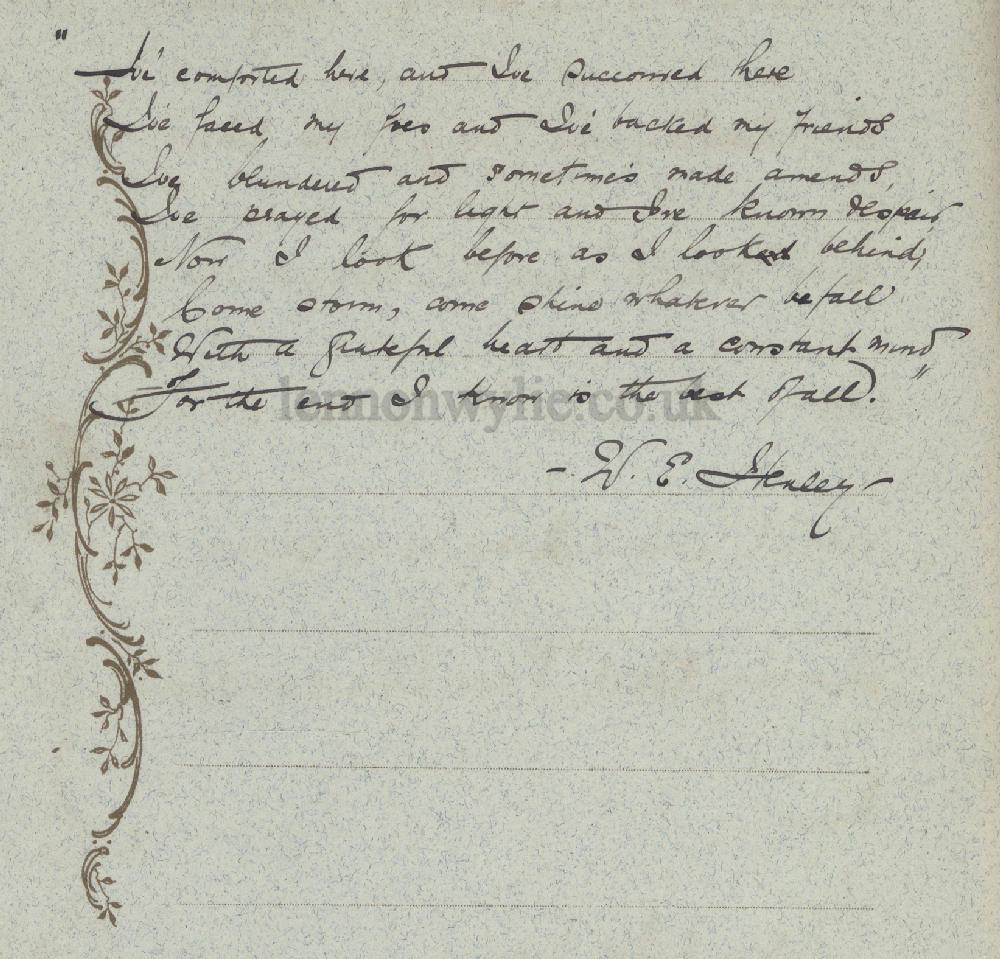 "I've comforted here, and I've succoured here
I've faced my foes and I've backed my friends
I've blundered and sometimes made amends,
I've prayed for light and I've known despair
Now I look before as I looked behind,
Come storm, come shine whatever befall
With a grateful heart and a constant mind
For the end I know is the best of all)."
- W. E. Henley -
lennonwylie.co.uk